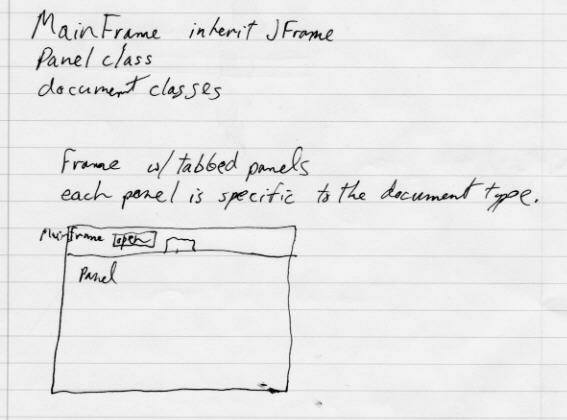 MainFrame inherit JFrame
Panel class
document classes
Frame w/ tabbed panels
each panel is specific to the document type.
MainFrame open
Panel